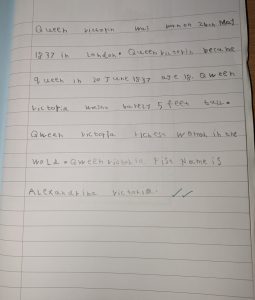 Queen victoria was born on 24th May
1837 in London. Queen victoria became
queen in 20 June 1837 age 18. Qween
victoria barely 5 feet tall.
Qween victoria richest woman in the
world. Qween victoria first Name is
Alexandrina victoria.